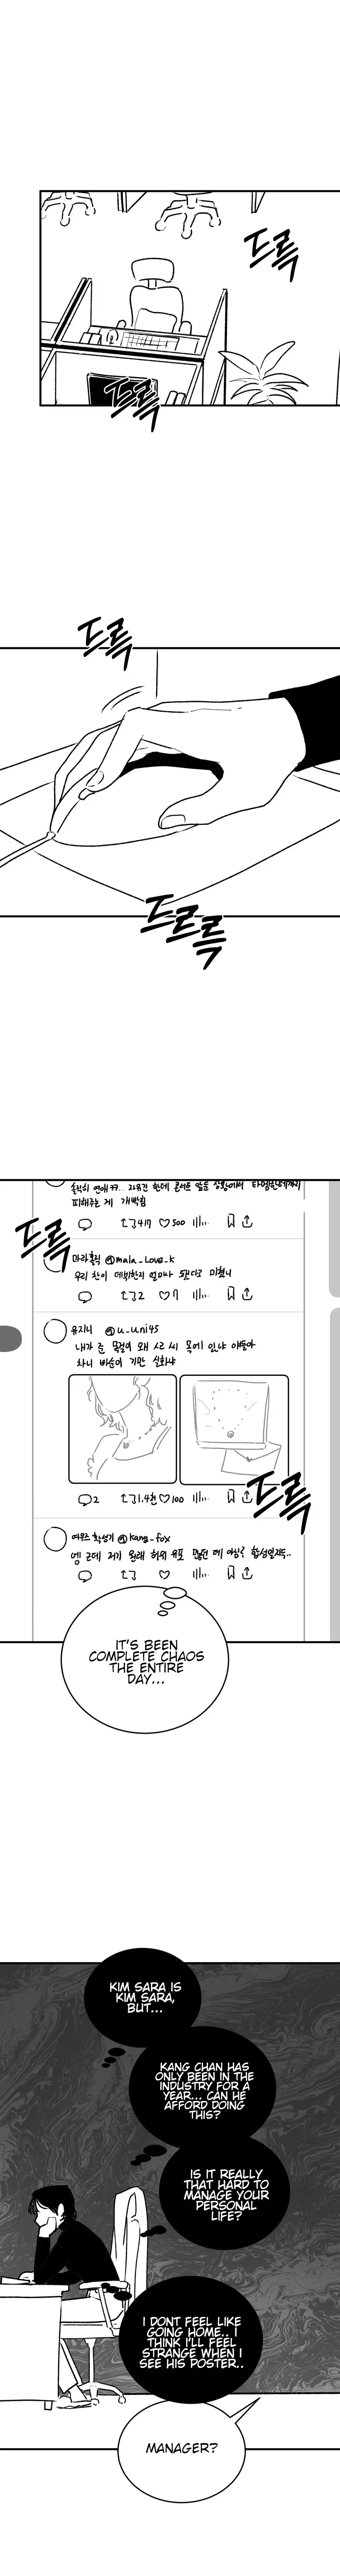 드륵
드륵
드륵
드르륵
솔직히 연애 ㅋㅋ.. 자유긴 한데 콘서트 앞둔 상황에서 타멤한테까지
피해주는 게 개빡침
417 500
드륵
마라홀릭 @mala_love_k
우리 찬이 데뷔한지 얼마나 됐다고 미쳤니
2 7
유지니 @u_uni45
내가 준 목걸이 왜 사라 씨 목에 있냐 이놈아
차니 빠순이 기만 실화냐
2 1.4천 100
드륵
여우즈 확성기 @kang_fox
엥 근데 저기 원래 허위 유포 많던 데 아님?
IT'S BEEN
COMPLETE CHAOS
THE ENTIRE
DAY...
KIM SARA IS
KIM SARA,
BUT...
KANG CHAN HAS
ONLY BEEN IN THE
INDUSTRY FOR A
YEAR... CAN HE
AFFORD DOING
THIS?
IS IT REALLY
THAT HARD TO
MANAGE YOUR
PERSONAL
LIFE?
I DONT FEEL LIKE
GOING HOME.. I
THINK I'LL FEEL
STRANGE WHEN I
SEE HIS POSTER..
MANAGER?